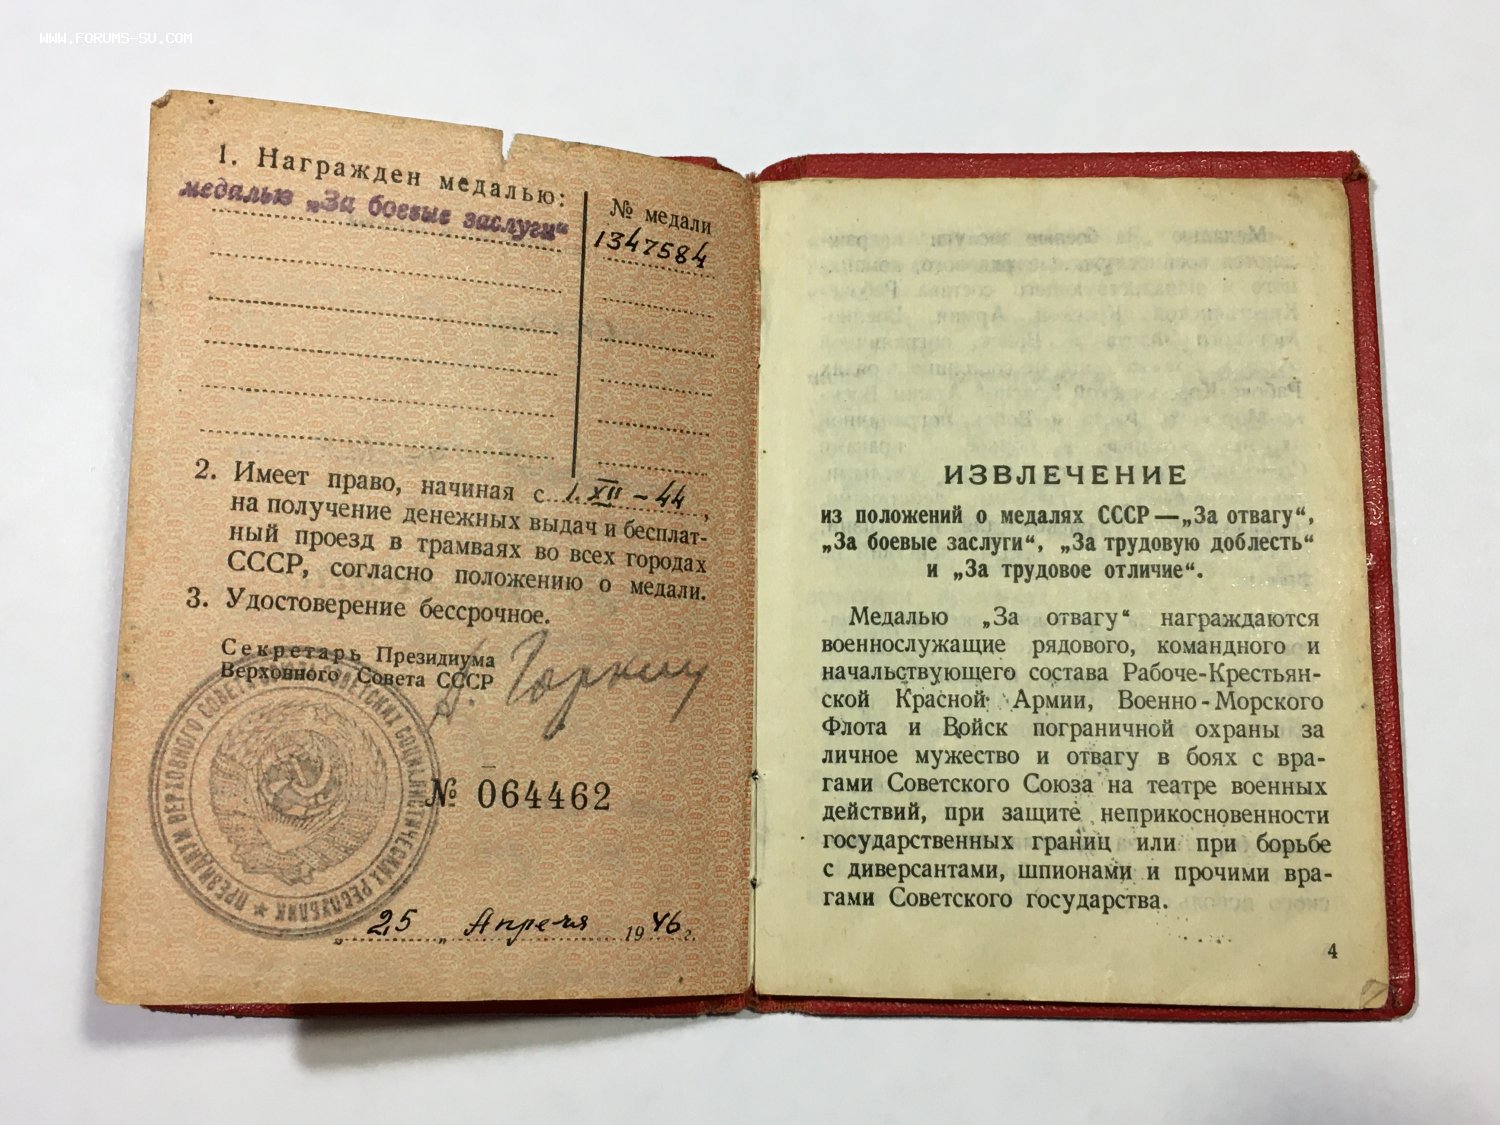 WWW.FORUMS-SU.COM
1. Награжден медалью:
медалью „За боевые заслуги“
№ медали
1347584
2. Имеет право, начиная с 1. XII – 44,
на получение денежных выдач и бесплат-
ный проезд в трамваях во всех городах
СССР, согласно положению о медали.
3. Удостоверение бессрочное.
Секретарь Президиума
Верховного Совета СССР
А. Горкин
ПРЕЗИДИУМ ВЕРХОВНОГО СОВЕТА СОЮЗА СОВЕТСКИХ СОЦИАЛИСТИЧЕСКИХ РЕСПУБЛИК
№ 064462
„25„ Апреля 1946 г.
ИЗВЛЕЧЕНИЕ
из положений о медалях СССР—„За отвагу“,
„За боевые заслуги“, „За трудовую доблесть“
и „За трудовое отличие“.
Медалью „За отвагу“ награждаются
военнослужащие рядового, командного и
начальствующего состава Рабоче-Крестьян-
ской Красной Армии, Военно-Морского
Флота и Войск пограничной охраны за
личное мужество и отвагу в боях с вра-
гами Советского Союза на театре военных
действий, при защите неприкосновенности
государственных границ или при борьбе
с диверсантами, шпионами и прочими вра-
гами Советского государства.
4